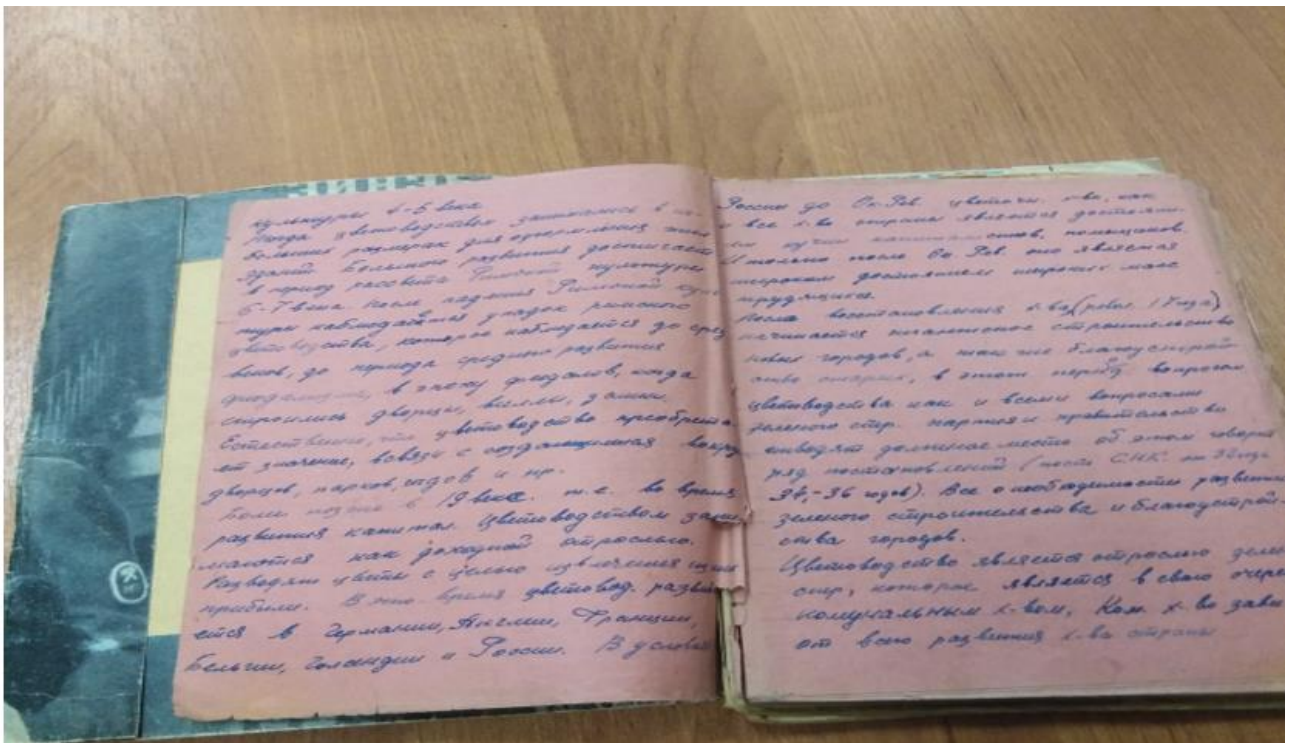 культуры 4-5 века
Когда цветоводством занимались в не-
больших размерах для оформления
зданий. Большого развития достигает
в период рассвета Римской культуры
6-7 века после падения Римской куль
туры наблюдается упадок римского
цветоводства, которое наблюдается до сред
веков, до периода среднего развития
феодализма, в эпоху феодалов, когда
строились дворцы, виллы, замки.
Естественно, что цветоводство приобрета
ет значение, всвязи с создающимися вокру
дворцов, парков, садов и пр.
Более позже в 19 веке т.е. во время
развития капитал. Цветоводством зани
маются как доходной отраслью.
Разводят цветы с целью извлечения
прибыли. В это время цветовод. развив
ется в Германии, Англии, Франции,
Бельгии, Голандии и России. В условия
России до Ок. Рев. цветочн. х-во, как
и все х-во страны является достоян.
капиталистов, помещиков.
И только после Ок. Рев. оно является
широким достоянием широких масс
трудящихся.
После восстановления х-ва (револ. 17 года)
начинается гигантское строительство
новых городов, а так же благоустрой
ство старых, в этот период вопросам
цветоводства как и всеми вопросами
зеленого стр. партия и правительство
отводят должное место об этом говорит
ряд постановлений (пост. СНК
34,-36 годов). Все о необходимости развития
зеленого строительства и благоустрой-
ства городов.
Цветоводство является отраслью зелен
стр, которое является в свою очере
комунальным х-вом, Ком. х-во зави
от всего развития х-ва страны